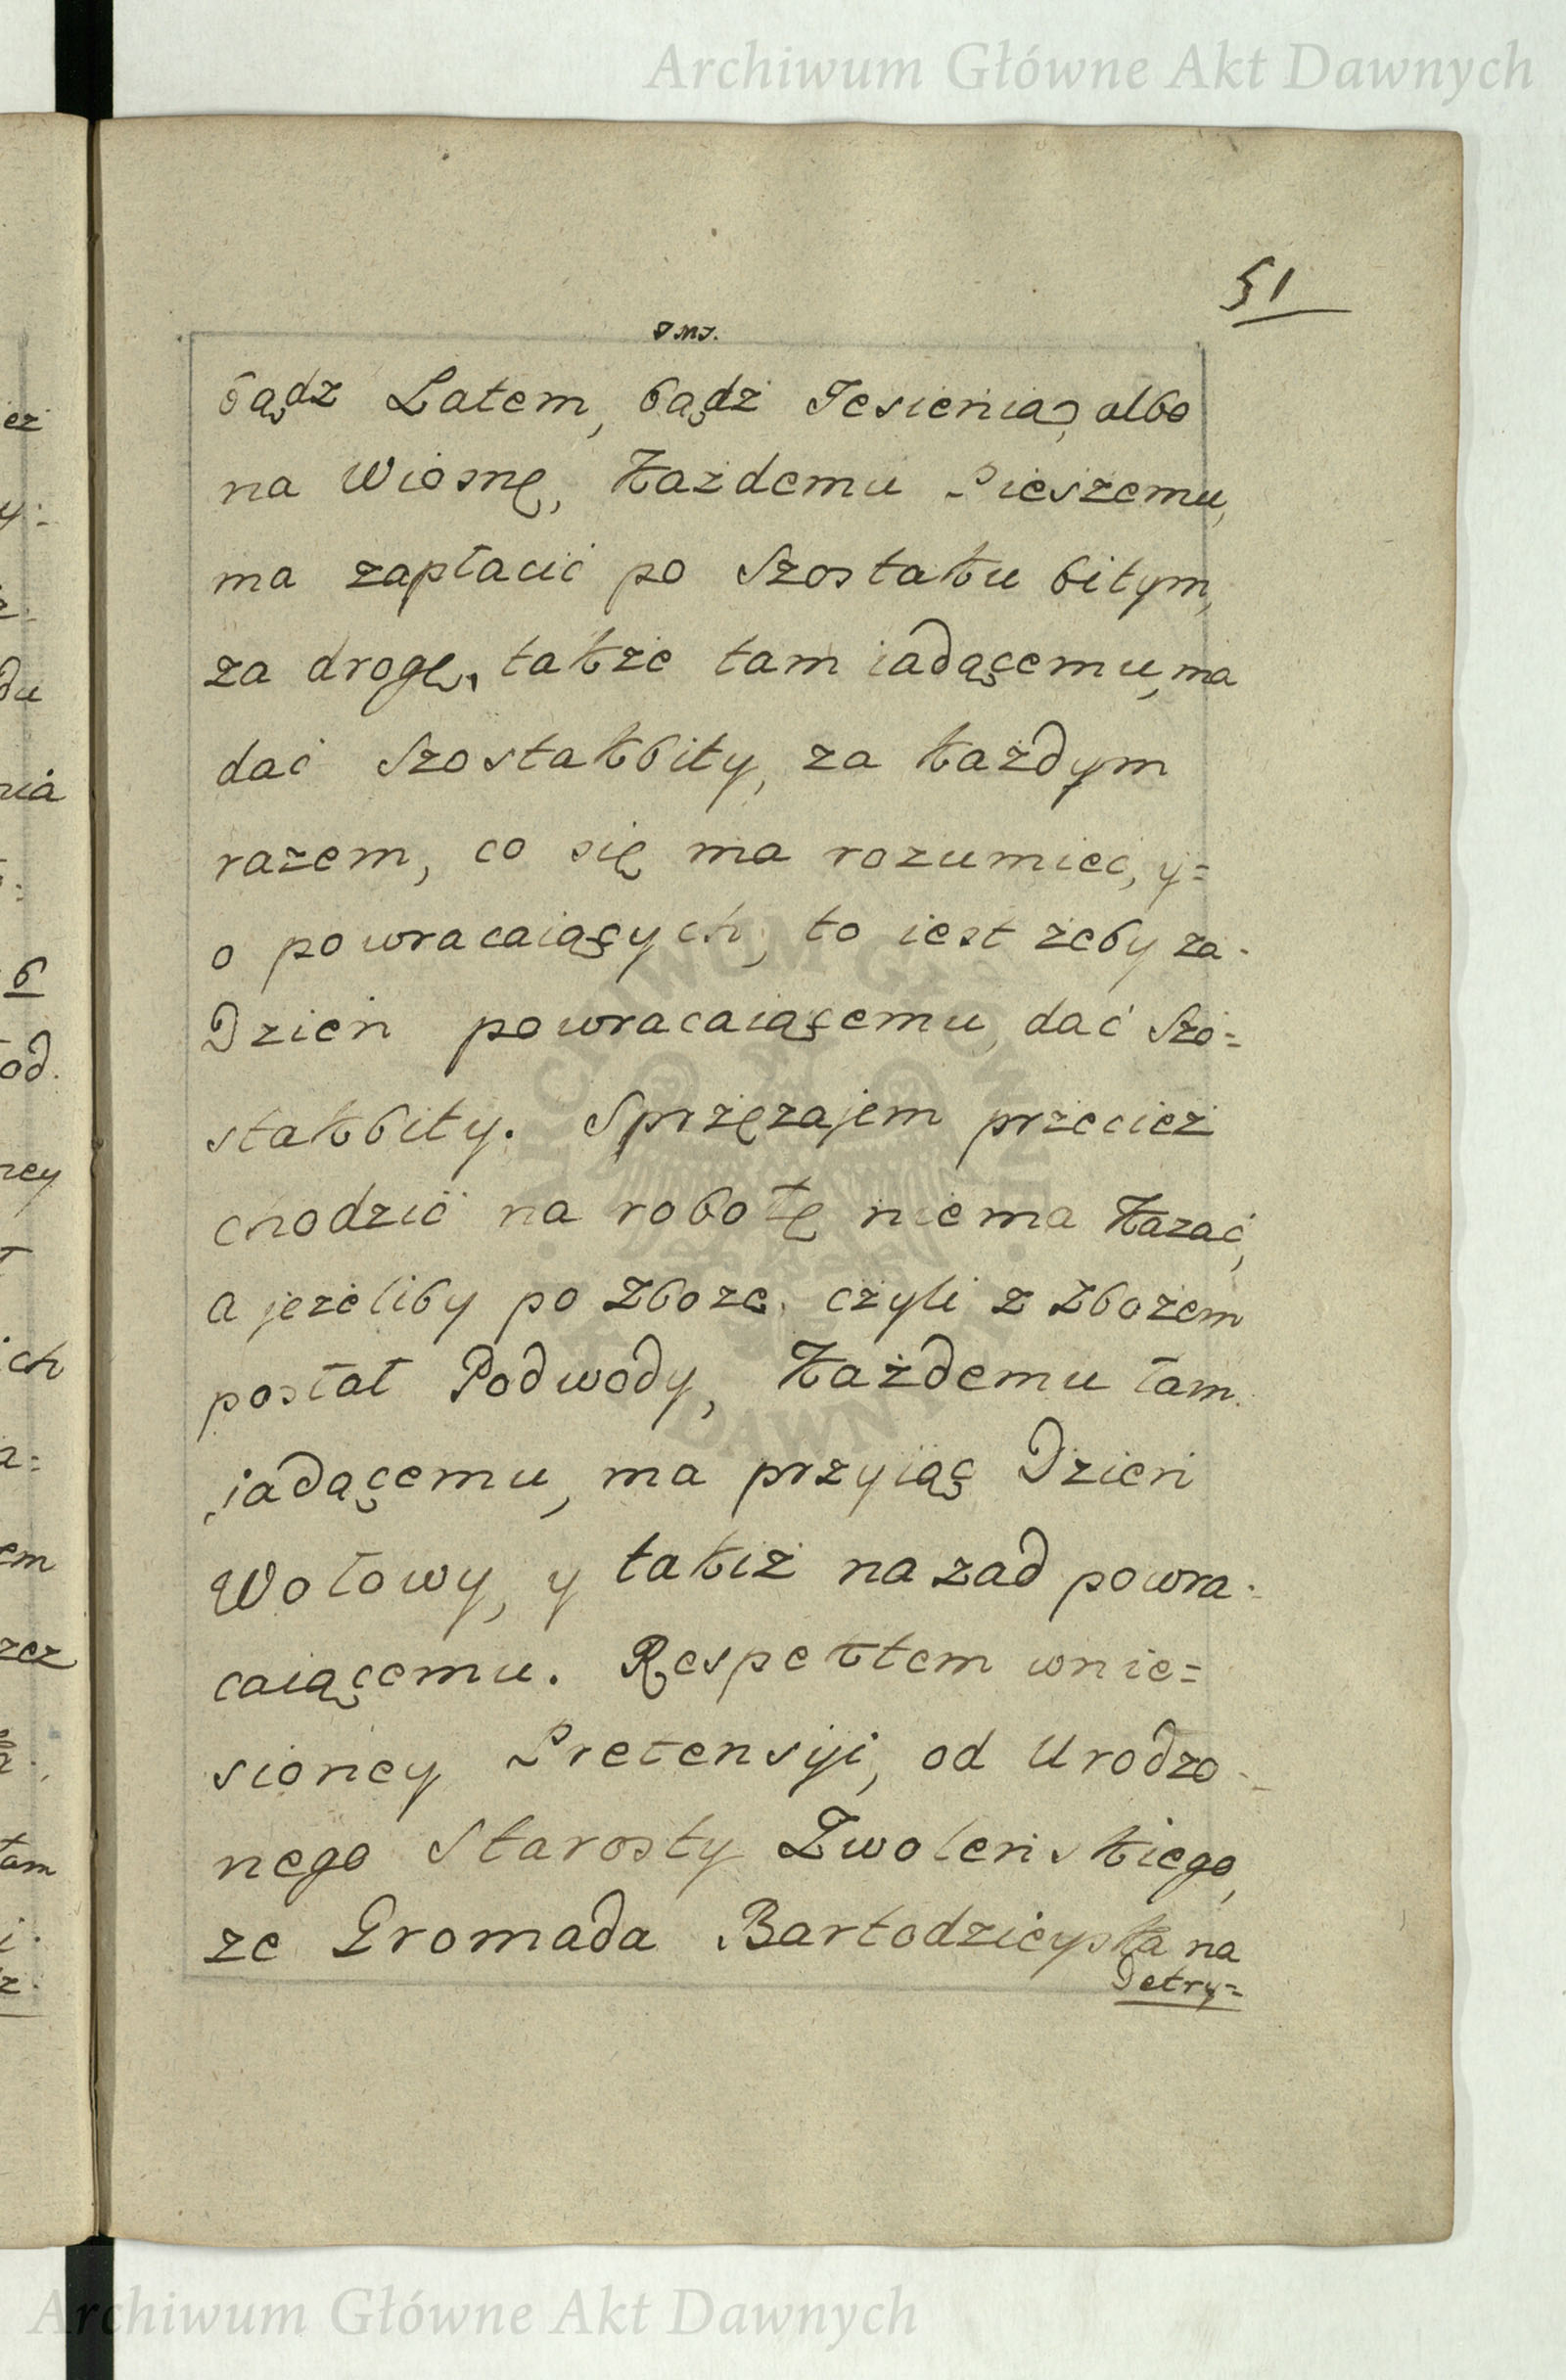 Archiwum Główne Akt Dawnych
51
bądz Latem, bądź Jesienią, albo
na Wiosnę, Każdemu Pieszemu,
ma zapłacić po Szostaku bitym,
za drogę, także tam iadącemu, ma
dać Szostakbity, za każdym
razem, co się ma rozumieć, y=
o powracaiących, to iest żeby za-
Dzień powracaiącemu dać Szo=
stakbity. Sprzężajem przecież
chodzić na robotę niema Kazać,
a jeżeliby po Zboże, czyli z Zbożem
posłał Podwody, Każdemu tam
iadącemu, ma przyiąć Dzień
Wołowy, y takiż nazad powra-
caiącemu. Respektem wnie=
sioney Pretensyi, od Urodzo-
nego Starosty Zwoleńskiego,
że Gromada Bartodzieyska na
Detry=
ARCHIWUM GŁÓWNE AKT DAWNYCH
Archiwum Główne Akt Dawnych